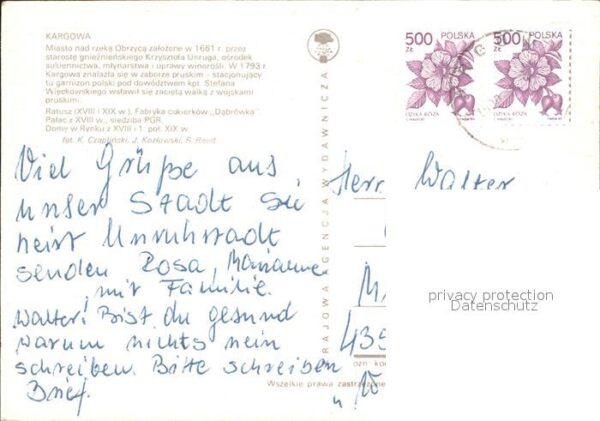 KARGOWA
Miasto nad rzeką Obrzycą założone w 1661 r. przez
starostę gnieźnieńskiego Krzysztofa Unruga, ośrodek
sukiennictwa, młynarstwa i uprawy winorośli. W 1793 r.
Kargowa znalazła się w zaborze pruskim - stacjonujący
tu garnizon polski pod dowództwem kpt. Stefana
Więckowskiego wsławił się zaciętą walką z wojskami
pruskimi.
Ratusz (XVIII i XIX w.), Fabryka cukierków „Dąbrówka”
Pałac z XVIII w., siedziba PGR
Domy w Rynku z XVIII i 1. poł. XIX w.
fot. K. Czapliński, J. Kozłowski,
500 ZŁ POLSKA
DZIKA RÓŻA
500 ZŁ POLSKA
DZIKA RÓŻA
KRAJOWA AGENCJA WYDAWNICZA
Viel Grüße aus
unser Stadt Sie
heist Unruhstadt
senden Rosa, Marianne
mit Familie.
Walter! Bist du gesund
warum nichts hein
schreiben. Bitte schreiben
Brief.
Herr Walter
M
435
privacy protection
Datenschutz
Wszelkie prawa zastrzeżone